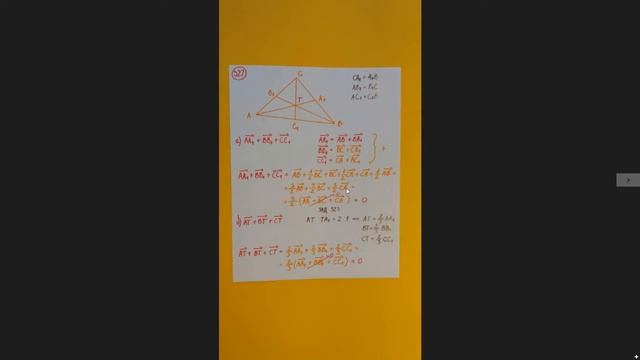 527
C
B₁
T
A₁
A
C₁
B
CA₁ = A₁B
AB₁ = B₁C
AC₁ = C₁B
a) AA₁ + BB₁ + CC₁
AA₁ = AB + BA₁
BB₁ = BC + CB₁
CC₁ = CA + AC₁
} +
AA₁ + BB₁ + CC₁ = AB + ½ BC + BC + ½ CA + CA + ½ AB =
= 3/2 AB + 3/2 BC + 3/2 CA =
= 3/2 (AB + BC + CA) = 0
ЗАД 523
b) AT + BT + CT
AT : TA₁ = 2 : 1 ⟹ AT = 2/3 AA₁
BT = 2/3 BB₁
CT = 2/3 CC₁
AT + BT + CT = 2/3 AA₁ + 2/3 BB₁ + 2/3 CC₁ =
= 2/3 (AA₁ + BB₁ + CC₁) = 0